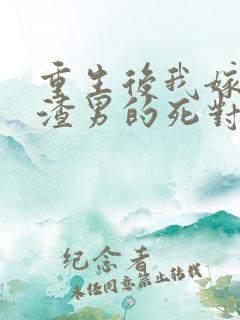 重生後我嫁
渣男的死對
纪念者
未经同意禁止转载